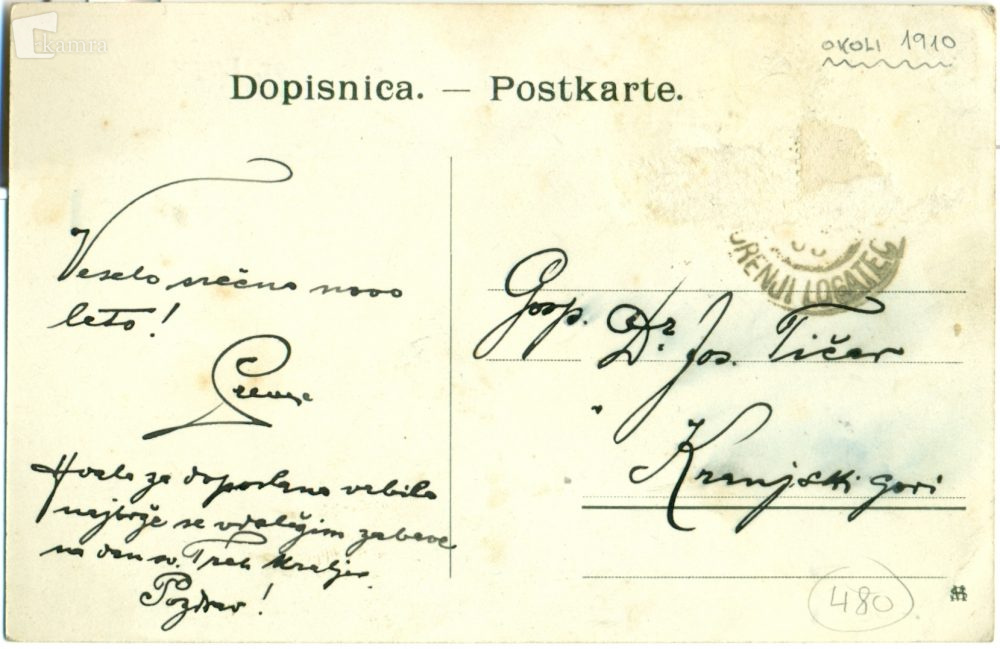 kamra
OKOLI 1910
Dopisnica. — Postkarte.
Veselo srečno novo
leto!
Hvala za doposlano vabilo
najbrže se vdeležim zabave
na dan sv. Treh kraljev.
Pozdrav!
ORENJI LOGATEC
Gosp. Dr. Jos. Tičar
Kranjski gori
480